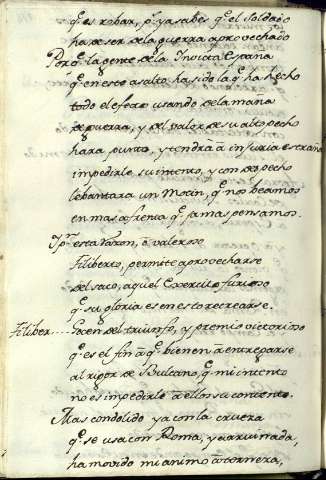 q̃. es robar, p̃. ya sabes q̃. el Soldado
ha de ser de la guerra aprovechado
Porq̃. la gente de la Invicta España
q̃. en este asalto ha sido la q̃. ha hecho
todo el efecto usando de la maña
de guerra, y del valor de su alto pecho
hara punto, y tendrá à injuria estraña
impedirle su intento, y con despecho
lebantara un Motin, q̃. nos beamos
en mas afrenta q̃. jamas pensamos.
I p.r esta razon, ò valeroso
Filiberto, permite aprovecharse
del saco, aquel Exercito furioso
q̃. su gloria es en esto recrearse.
Filiber.... Gocen del triunfo, y premio victorioso
q̃. es el fin à q̃. bienen à entregarse
al rigor de Bulcano, q̃. mi intento
no es impedirle à ellos su contento.
Mas condolido ya con la crueza
q̃. se usa con Roma, y ya arruinada,
ha movido mi animo à terneza,